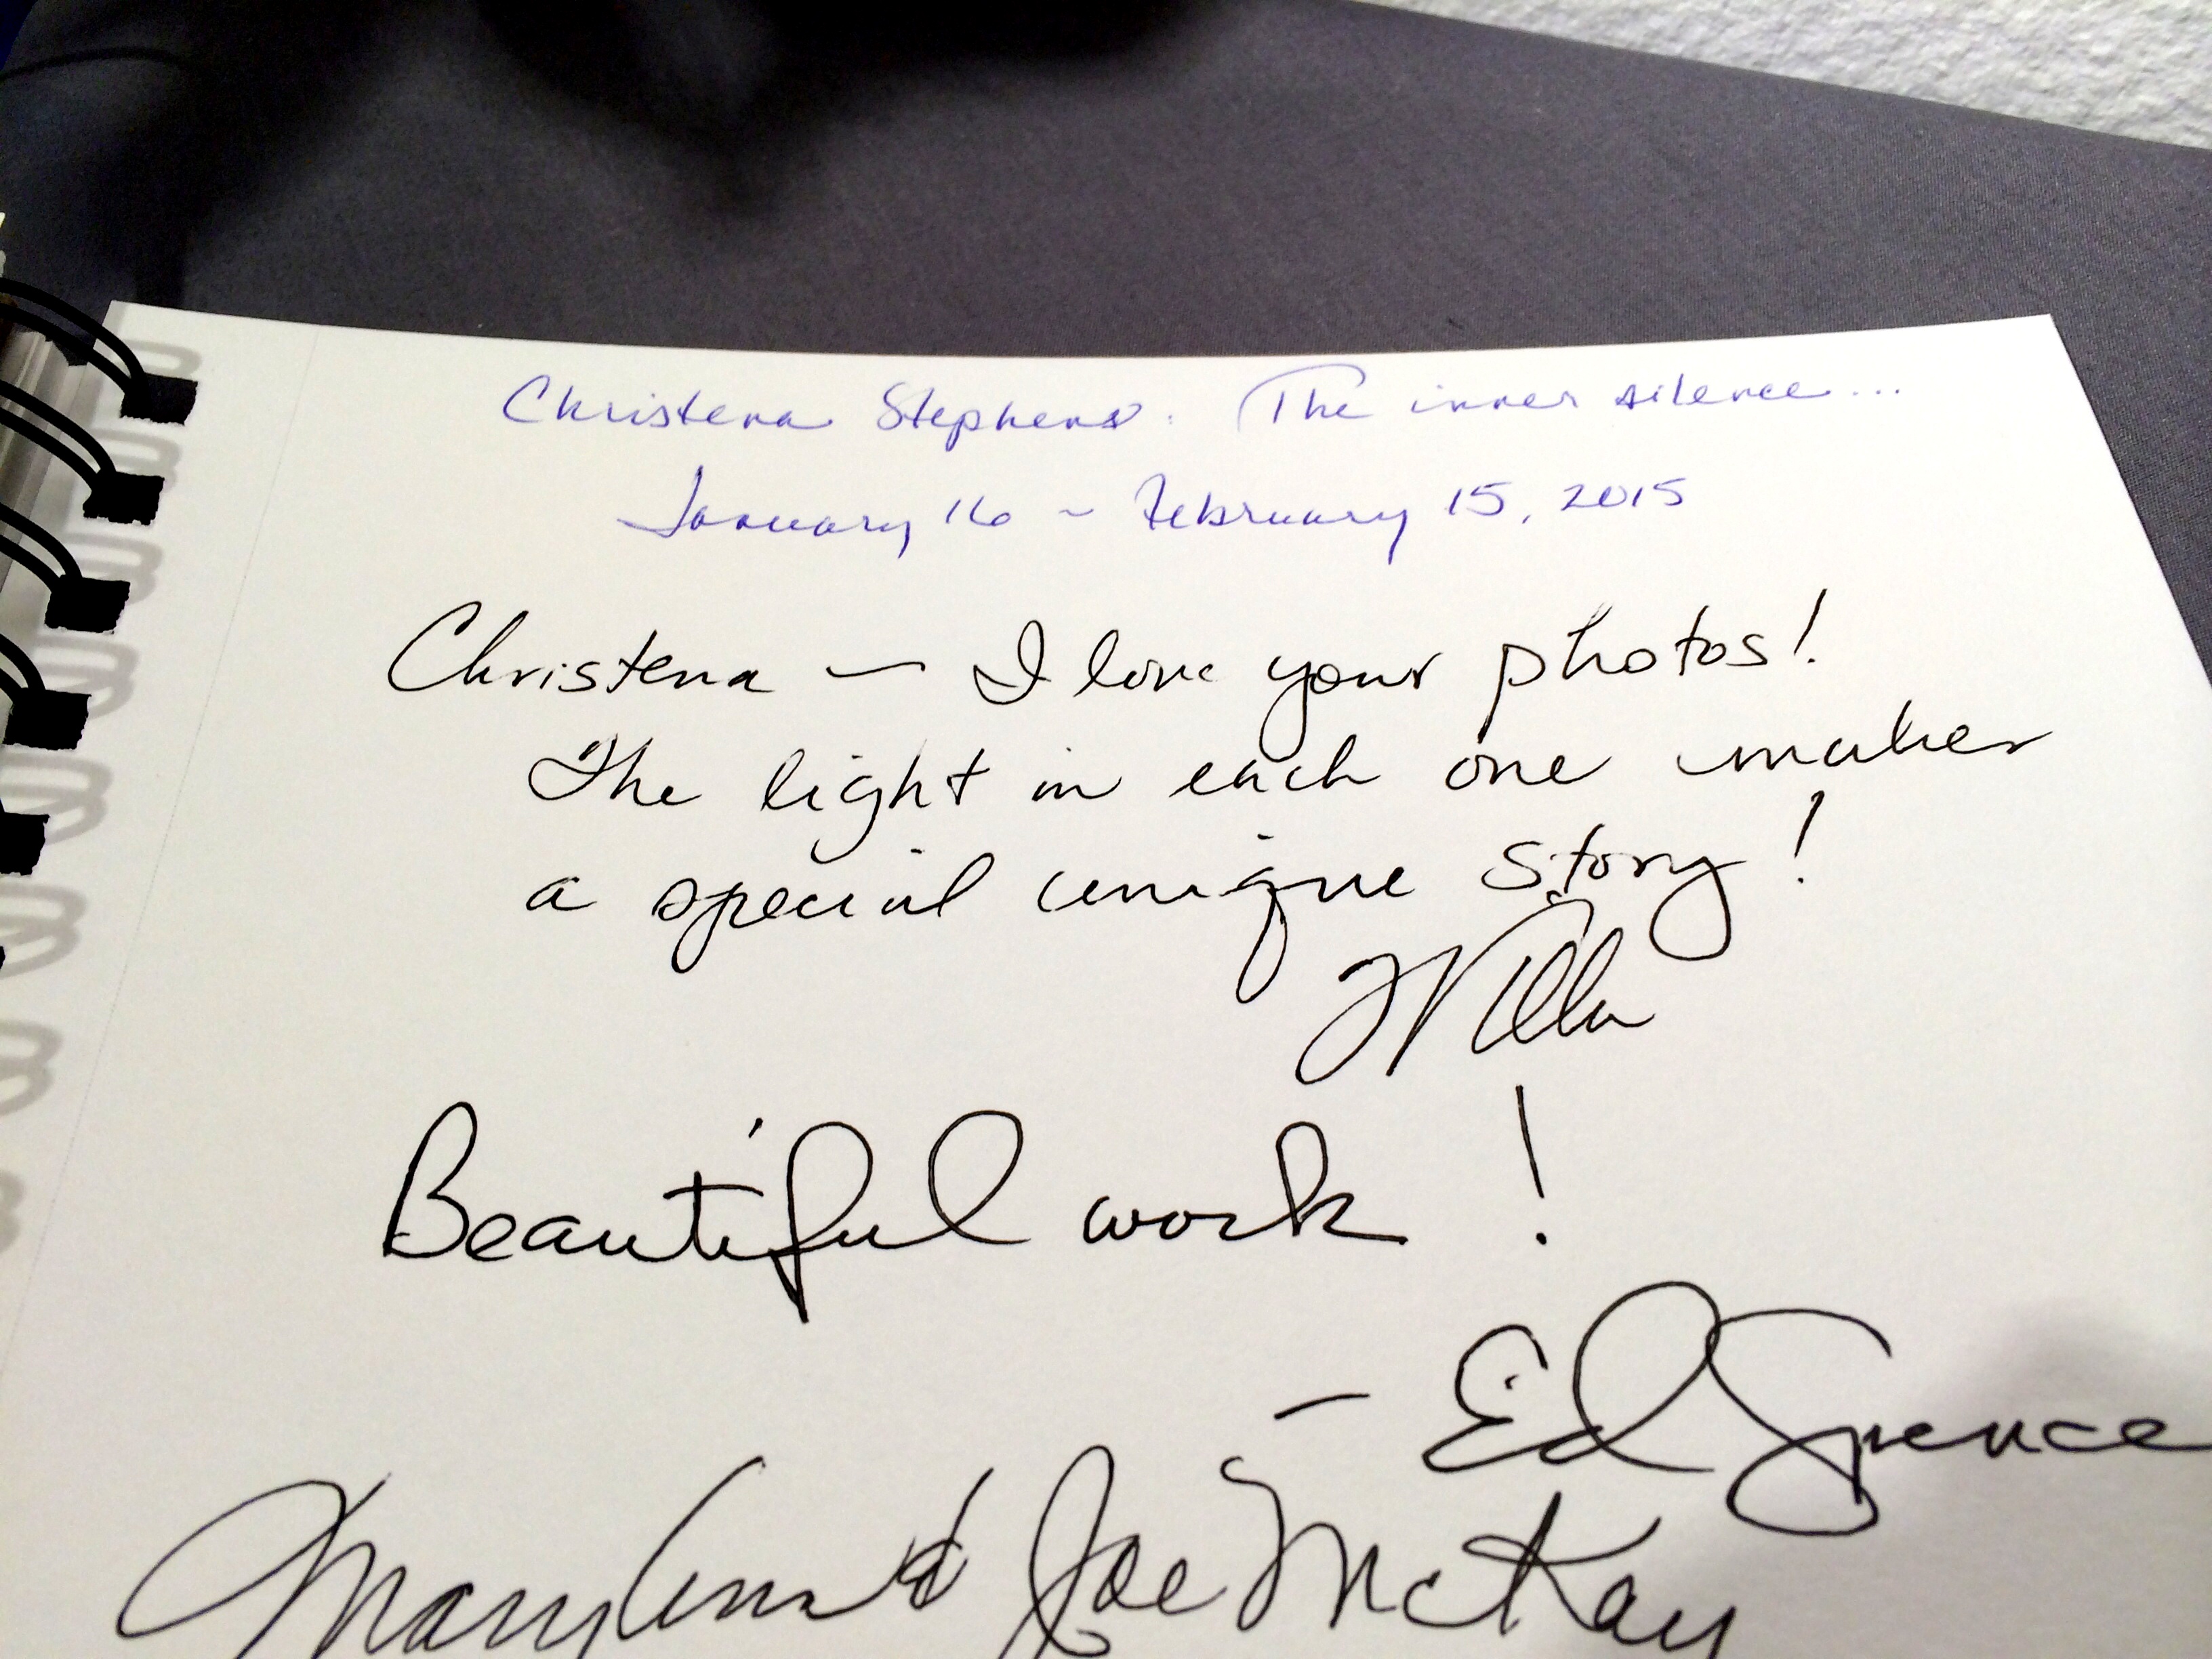 Christena Stephens: The inner silence...
January 16 ~ February 15, 2015
Christena — I love your photos!
The light in each one makes
a special unique story!
Beautiful work!
— Ed Spence
Mary Ann & Joe McKay